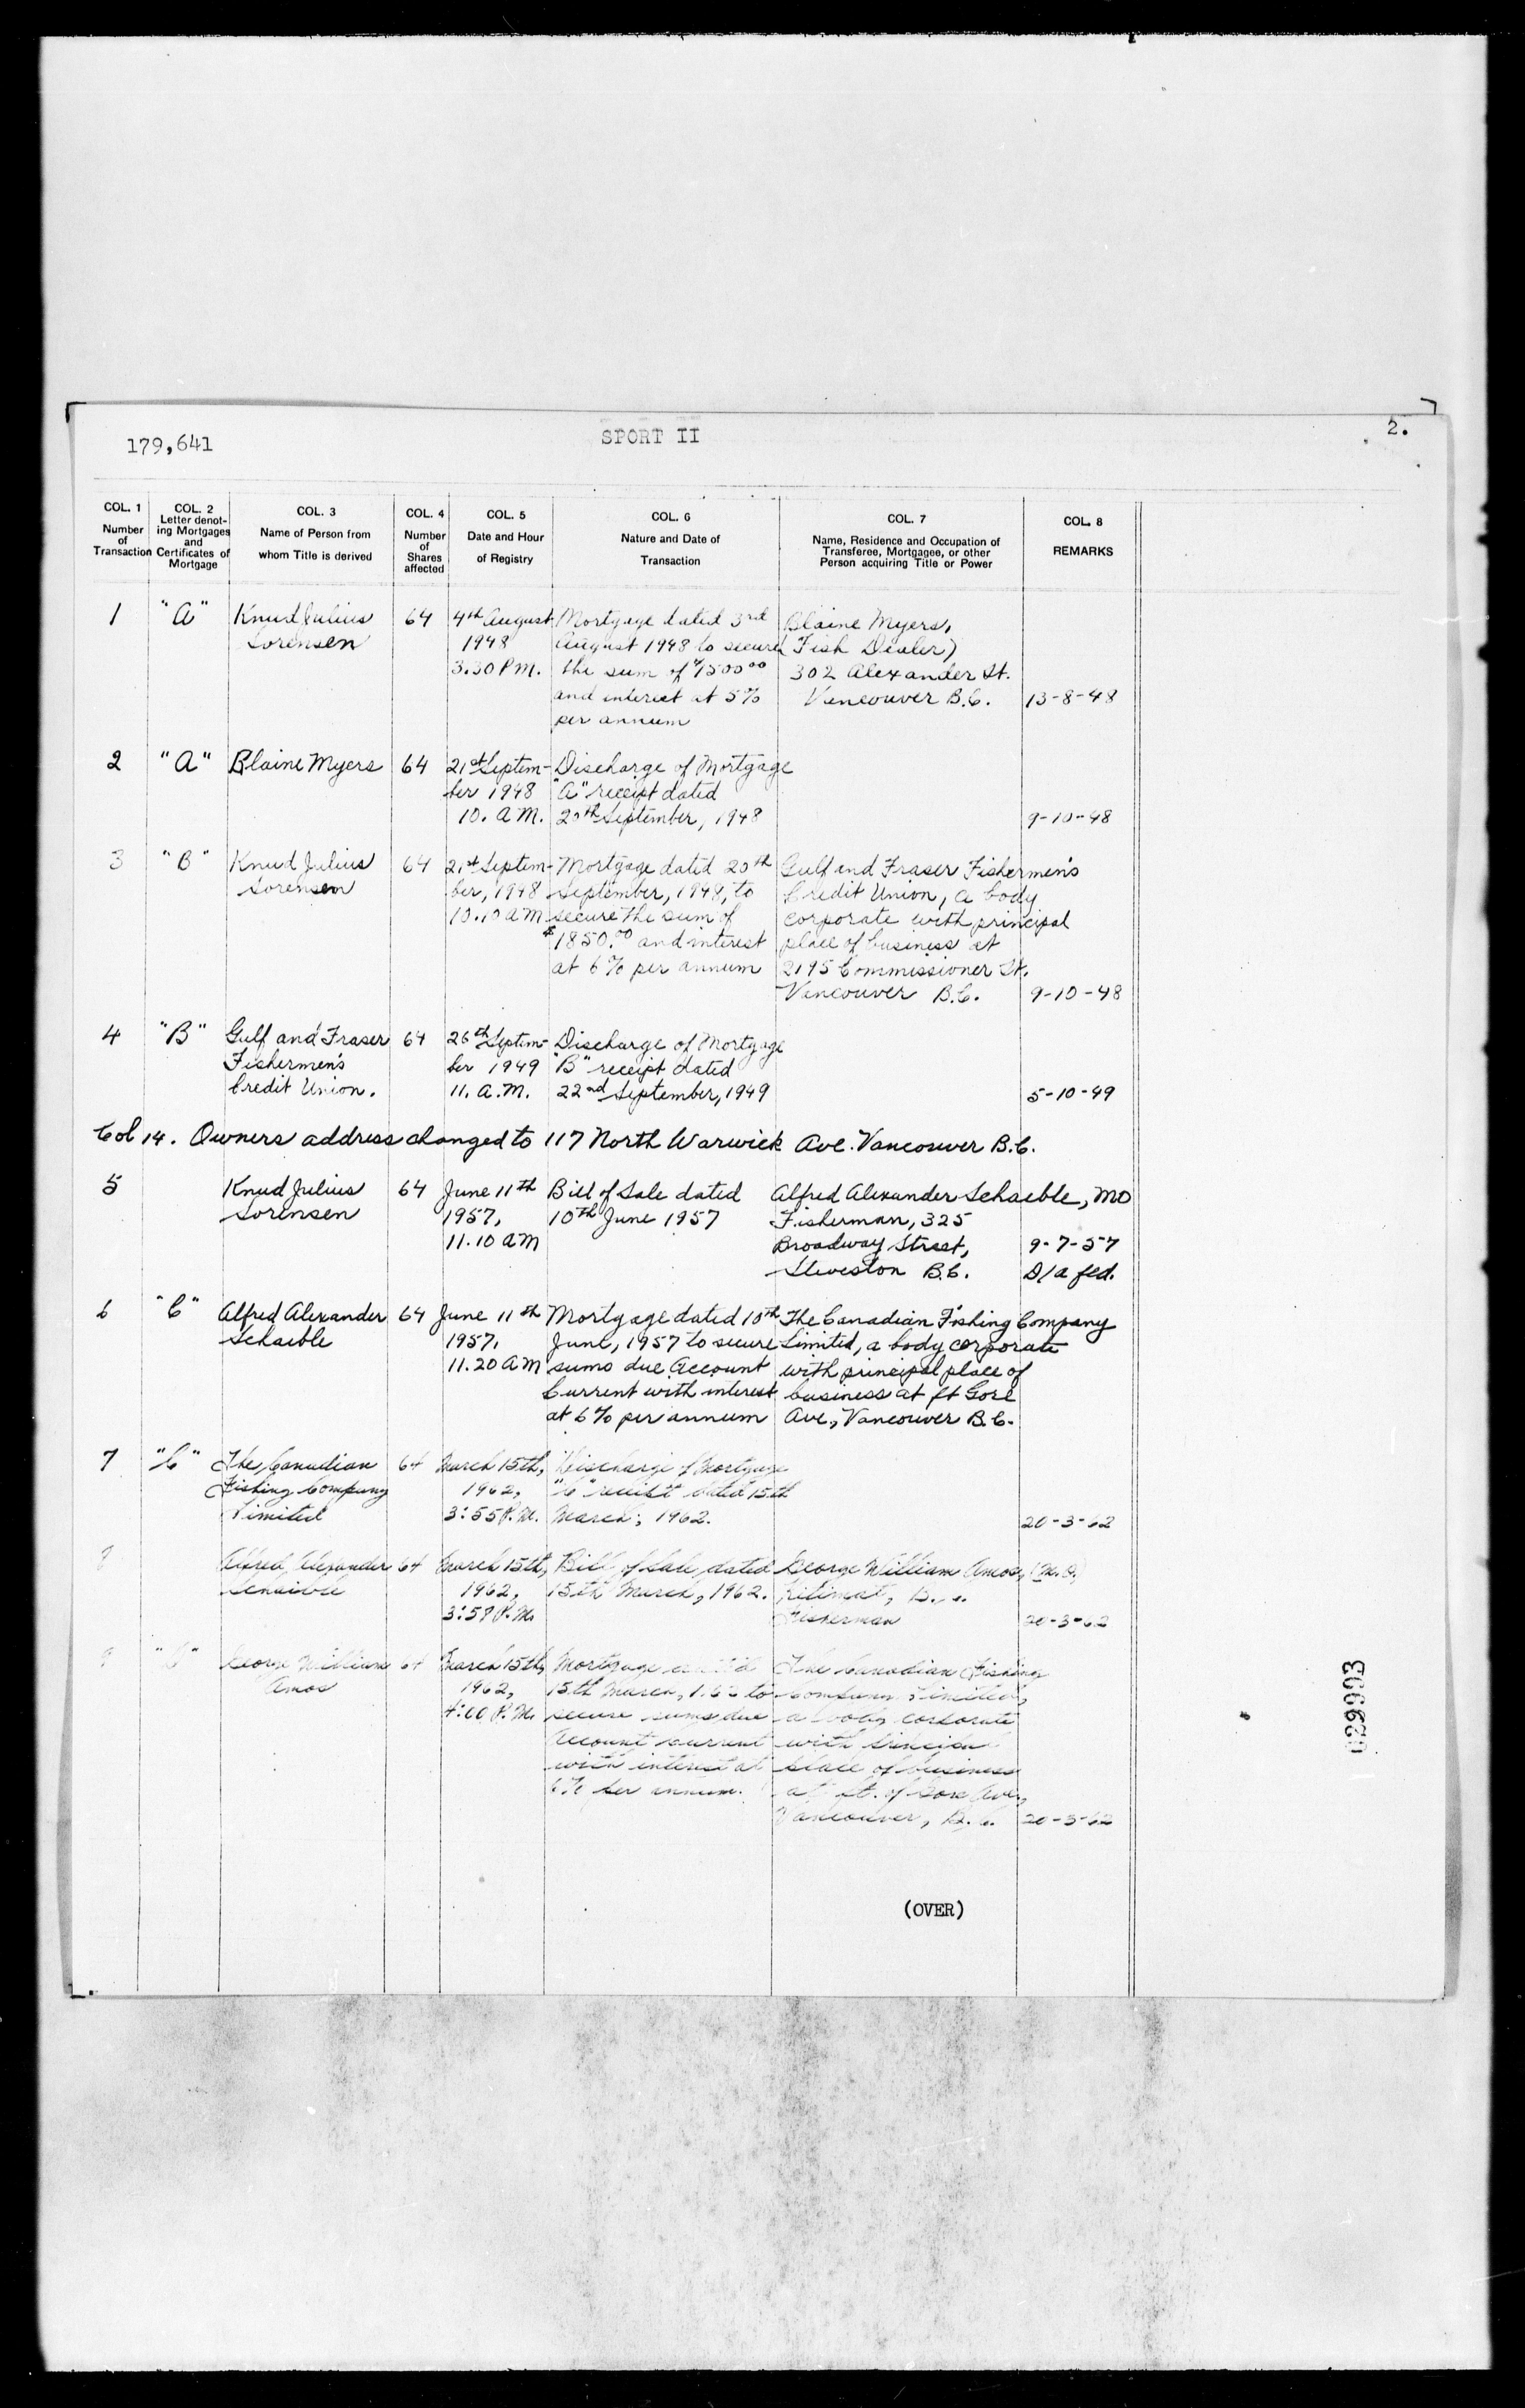 179,641
SPORT II
2.
COL. 1
Number
of
Transaction
COL. 2
Letter denot-
ing Mortgages
and
Certificates of
Mortgage
COL. 3
Name of Person from
whom Title is derived
COL. 4
Number
of
Shares
affected
COL. 5
Date and Hour
of Registry
COL. 6
Nature and Date of
Transaction
COL. 7
Name, Residence and Occupation of
Transferee, Mortgagee, or other
Person acquiring Title or Power
COL. 8
REMARKS
1 "A" Knud Julius 64 4th August Mortgage dated 3rd Blaine Myers,
Sorensen 1948 August 1948 to secure (Fish Dealer)
3.30 P.M. the sum of $1500.00 302 Alexander St.
and interest at 5% Vancouver B.C. 13-8-48
per annum
2 "A" Blaine Myers 64 21st Septem- Discharge of Mortgage
ber 1948 "A" receipt dated
10. A.M. 20th September, 1948 9-10-48
3 "B" Knud Julius 64 21st Septem- Mortgage dated 20th Gulf and Fraser Fishermen's
Sorensen ber, 1948 September, 1948, to Credit Union, a body
10.10 AM secure the sum of corporate with principal
$1850.00 and interest place of business at
at 6% per annum 2195 Commissioner St.
Vancouver B.C. 9-10-48
4 "B" Gulf and Fraser 64 26th Septem- Discharge of Mortgage
Fishermen's ber 1949 "B" receipt dated
Credit Union. 11. A.M. 22nd September, 1949 5-10-49
Col 14. Owners address changed to 117 North Warwick Ave. Vancouver B.C.
5 Knud Julius 64 June 11th Bill of Sale dated Alfred Alexander Schaeble, MO
Sorensen 1957, 10th June 1957 Fisherman, 325
11.10 AM Broadway Street, 9-7-57
Steveston B.C. D/a fld.
6 "C" Alfred Alexander 64 June 11th Mortgage dated 10th The Canadian Fishing Company
Schaeble 1957, June, 1957 to secure Limited, a body corporate
11.20 AM sums due Account with principal place of
Current with interest business at ft Gore
at 6% per annum Ave., Vancouver B.C.
7 "C" The Canadian 64 March 15th, Discharge of Mortgage
Fishing Company 1962, "C" receipt dated 15th
Limited 3:55 P.M. March, 1962. 20-3-62
8 Alfred Alexander 64 March 15th, Bill of Sale dated George William Amos, (M.O.
Schaible 1962, 15th March, 1962. Kitimat, B.C.
3:58 P.M. Fisherman 20-3-62
9 George William 64 March 15th, Mortgage dated The Canadian Fishing
Amos 1962, 15th March, 1962 to Company Limited,
4:00 P.M. secure sums due a body corporate
account current with principal
with interest at place of business
6% per annum. at ft. of Gore Ave.,
Vancouver, B.C. 20-3-62
(OVER)
029903